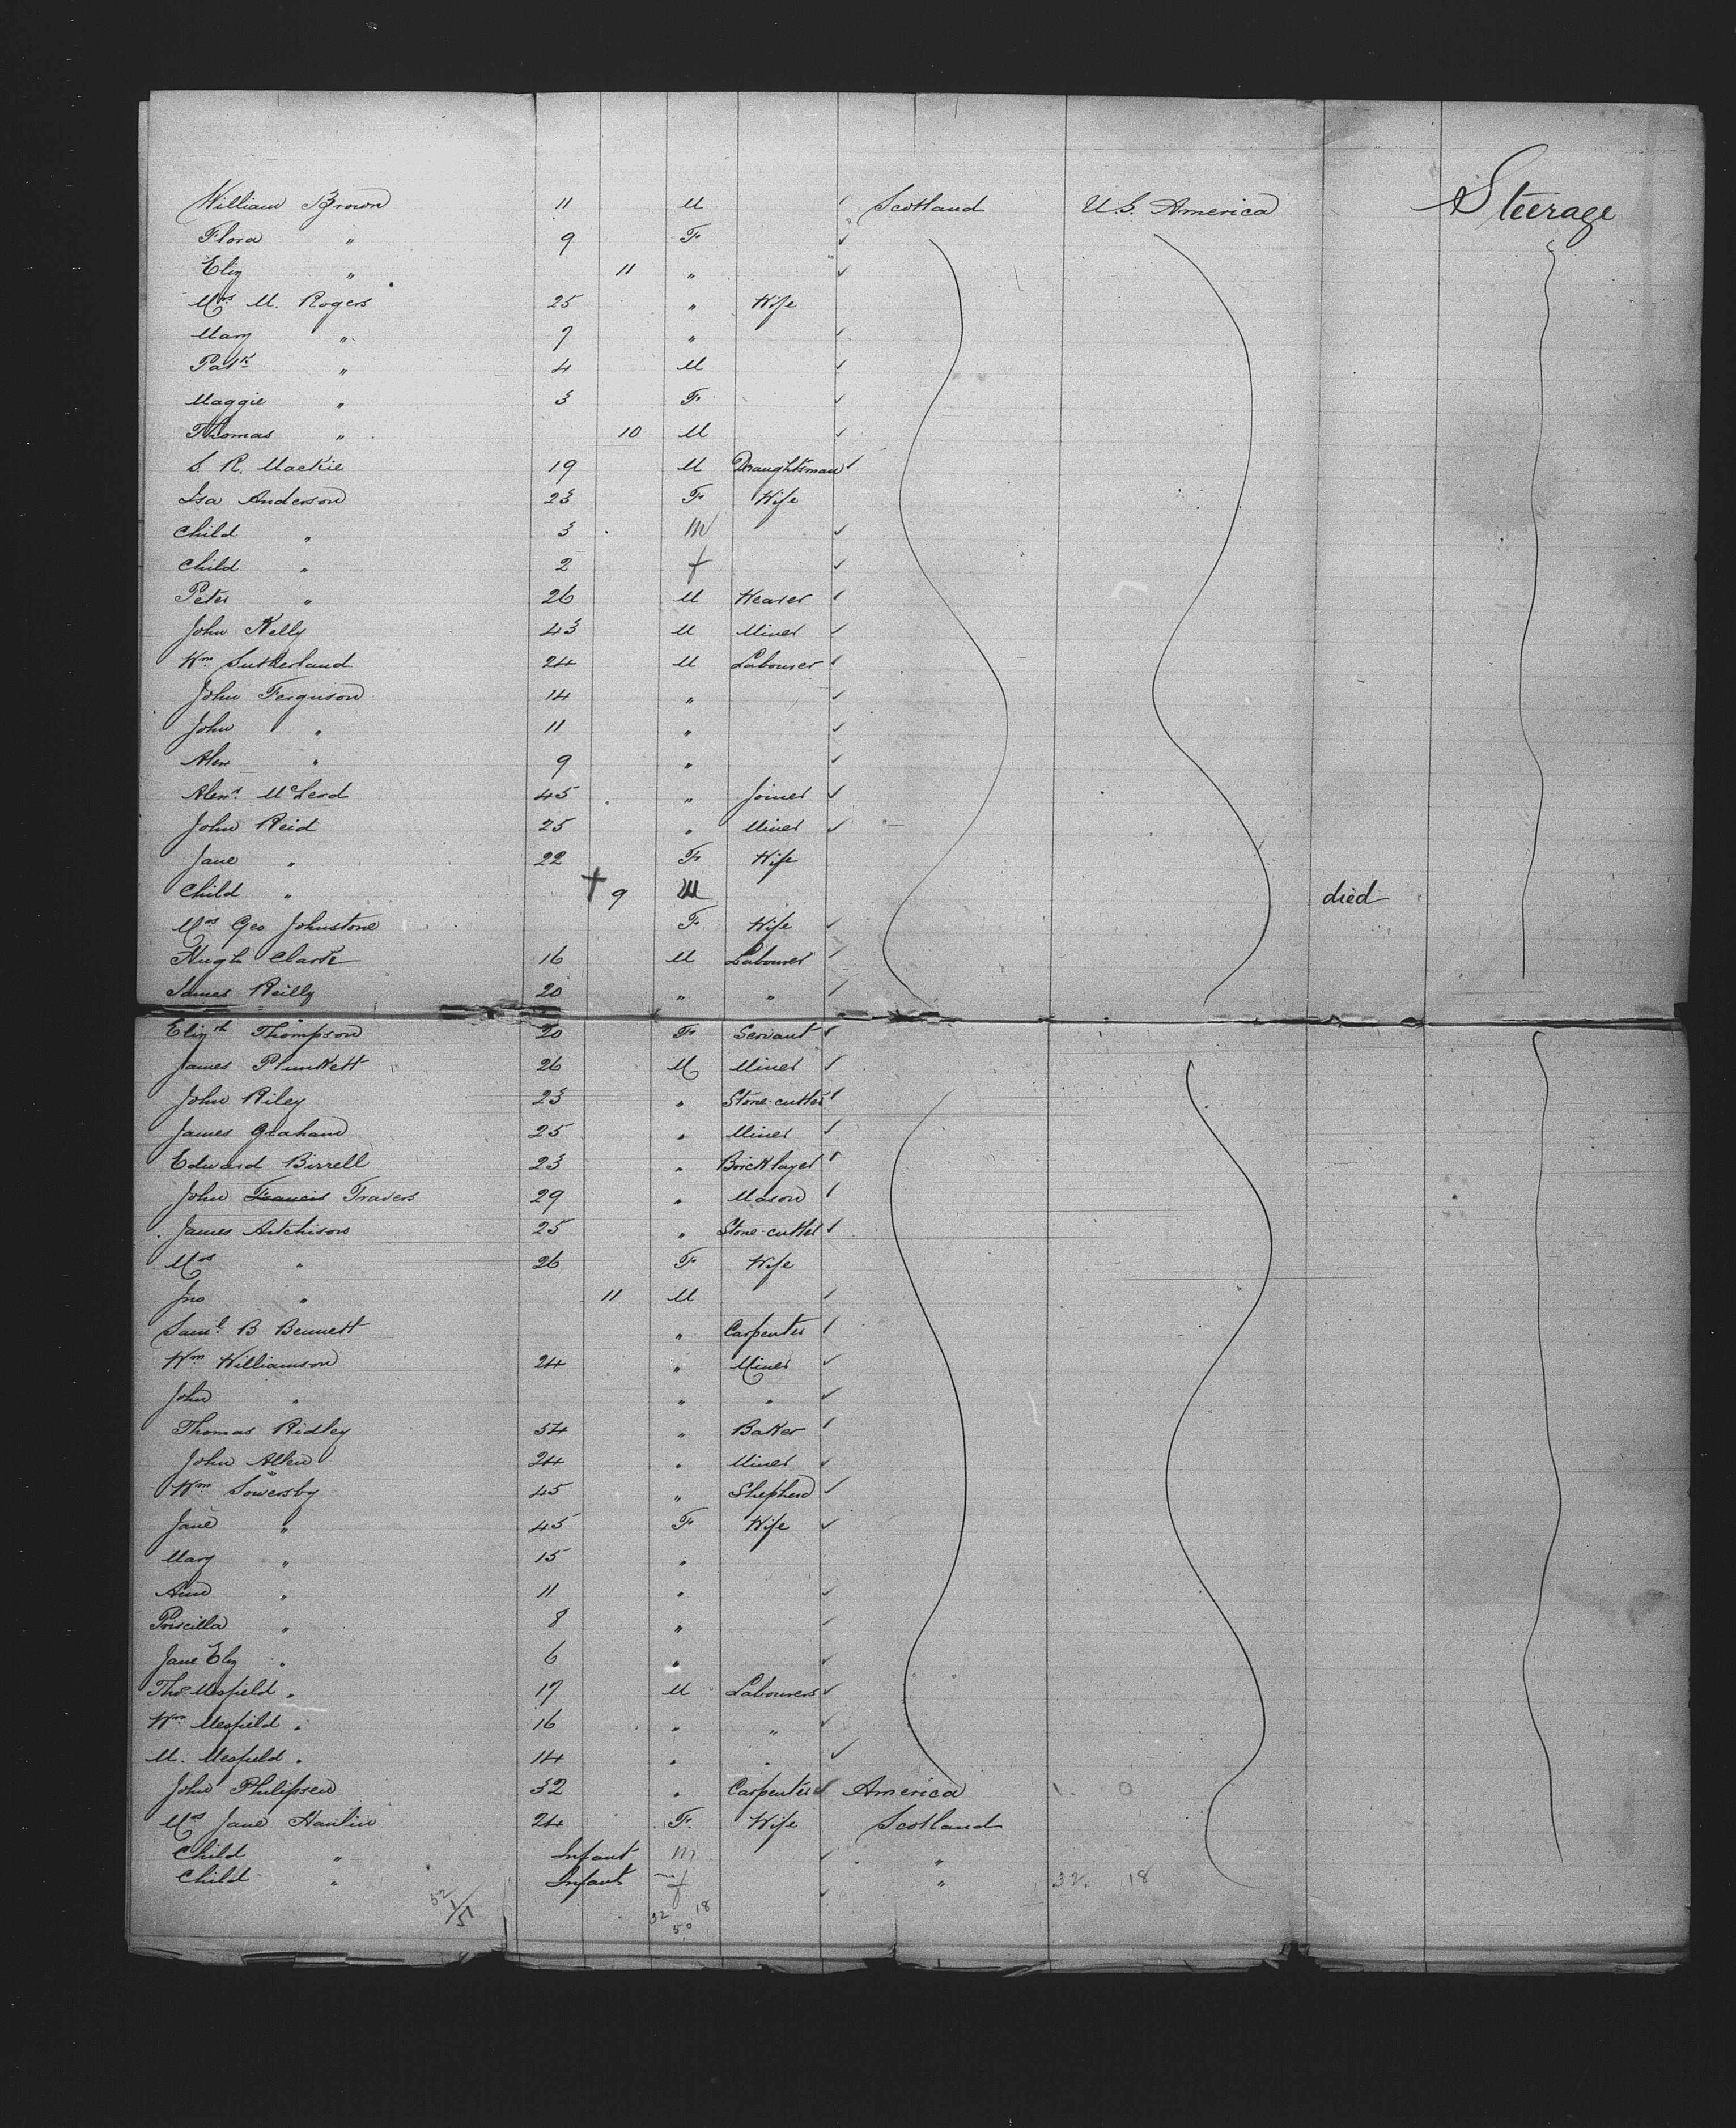 William Brown 11 M Scotland U.S. America Steerage
Flora " 9 F
Eliz " 11 "
Mrs M. Rogers 25 " Wife
Mary " 7 "
Patk " 4 M
Maggie " 3 F
Thomas " 10 M
S. R. Mackie 19 M Draughtsman
Isa Anderson 23 F Wife
Child " 3 M
Child " 2 f
Peter " 26 M Weaver
John Kelly 43 M Miner
Wm Sutherland 24 M Labourer
John Ferguson 14 "
John " 11 "
Alex " 9 "
Alexr McLeod 45 " Joiner
John Reid 25 " Miner
Jane " 22 F Wife
Child " † 9 M died
Mrs Geo Johnstone F Wife
Hugh Clark 16 M Labourer
James Reilly 20 " "
Elizth Thompson 20 F Servant
James Plunkett 26 M Miner
John Riley 23 " Stone-cutter
James Graham 25 " Miner
Edward Birrell 23 " Bricklayer
John Francis Travers 29 " Mason
James Aitchison 25 " Stone-cutter
Mrs " 26 F Wife
Jno " 11 M
Saml B Bennett " Carpenter
Wm Williamson 24 " Miner
John " " "
Thomas Ridley 54 " Baker
John Allen 24 " Miner
Wm Sowersby 45 " Shepherd
Jane " 45 F Wife
Mary " 15 "
Ann " 11 "
Priscilla " 8 "
Jane Eliz " 6 "
Thos Mesfield " 17 M Labourers
Wm Mesfield " 16 " "
M. Mesfield " 14 " "
John Philipsen 32 " Carpenter America
Mrs Jane Hanlin 24 F Wife Scotland
Child " Infant m "
Child " Infant f " 32. 18
32 18
50